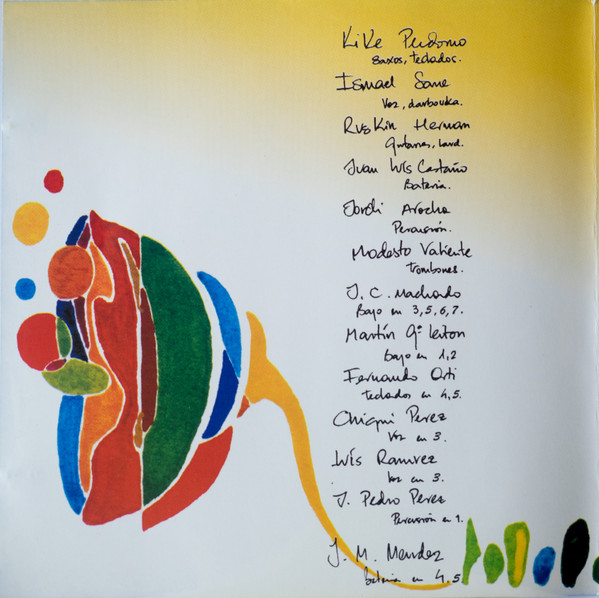 Kike Perdomo
Saxos, teclados.
Ismael Sane
Voz, darbouka.
Ruskin Herman
guitarras, laud.
Juan Luís Castaño
Batería.
Jordi Arocha
Percusión.
Modesto Valiente
trombones.
J. C. Machado
Bajo en 3, 5, 6, 7.
Martín Gª Leiton
bajo en 1, 2
Fernando Orti
teclados en 4, 5.
Chiqui Perez
Voz en 3.
Luís Ramirez
Voz en 3.
J. Pedro Perez
Percusión en 1.
J. M. Mendez
batería en 4, 5